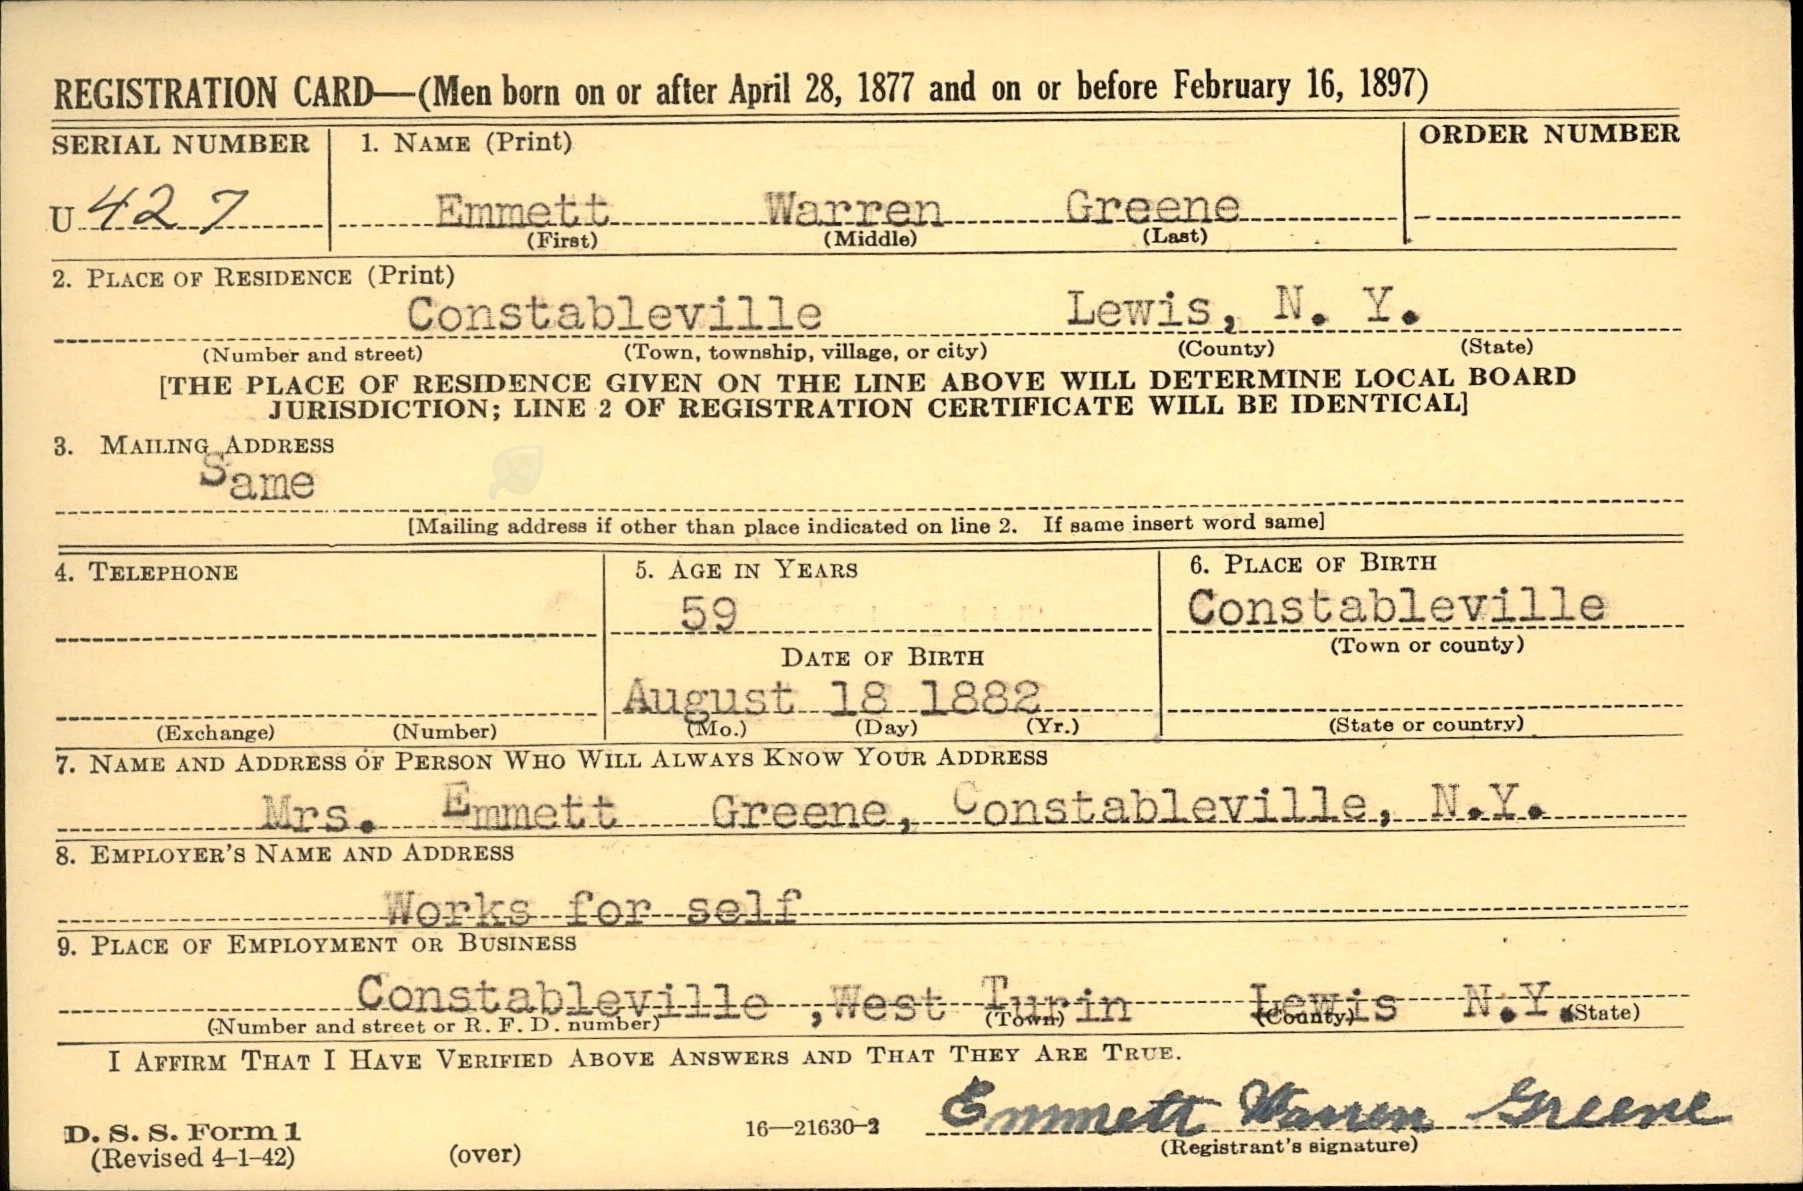 REGISTRATION CARD—(Men born on or after April 28, 1877 and on or before February 16, 1897)
SERIAL NUMBER 1. NAME (Print) ORDER NUMBER
U 427 Emmett Warren Greene
(First) (Middle) (Last)
2. PLACE OF RESIDENCE (Print)
Constableville Lewis, N. Y.
(Number and street) (Town, township, village, or city) (County) (State)
[THE PLACE OF RESIDENCE GIVEN ON THE LINE ABOVE WILL DETERMINE LOCAL BOARD
JURISDICTION; LINE 2 OF REGISTRATION CERTIFICATE WILL BE IDENTICAL]
3. MAILING ADDRESS
Same
[Mailing address if other than place indicated on line 2. If same insert word same]
4. TELEPHONE 5. AGE IN YEARS 6. PLACE OF BIRTH
59 Constableville
(Town or county)
DATE OF BIRTH
August 18 1882
(Exchange) (Number) (Mo.) (Day) (Yr.) (State or country)
7. NAME AND ADDRESS OF PERSON WHO WILL ALWAYS KNOW YOUR ADDRESS
Mrs. Emmett Greene, Constableville, N.Y.
8. EMPLOYER'S NAME AND ADDRESS
Works for self
9. PLACE OF EMPLOYMENT OR BUSINESS
Constableville ,West Turin Lewis N.Y.
(Number and street or R. F. D. number) (Town) (County) (State)
I AFFIRM THAT I HAVE VERIFIED ABOVE ANSWERS AND THAT THEY ARE TRUE.
Emmett Warren Greene
D. S. S. Form 1 16—21630-2 (Registrant's signature)
(Revised 4-1-42) (over)